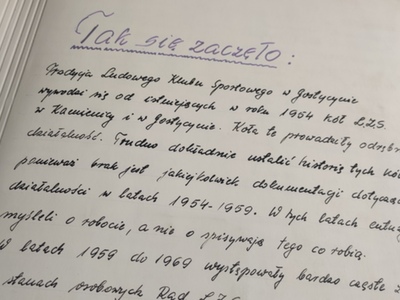 Tak się zaczęło:
Tradycja Ludowego Klubu Sportowego w Gostycynie
wywodzi się od istniejących w roku 1954 kół L.Z.S.
w Kamienicy i w Gostycynie. Koła te prowadziły
działalność. Trudno dokładnie ustalić historię tych
ponieważ brak jest jakiejkolwiek dokumentacji
działalności w latach 1954-1959. W tych latach
myśleli o robocie, a nie o spisywaniu tego co robią.
W latach 1959 do 1969 występowały bardzo częste
stanach osobowych Rad L.Z.S.